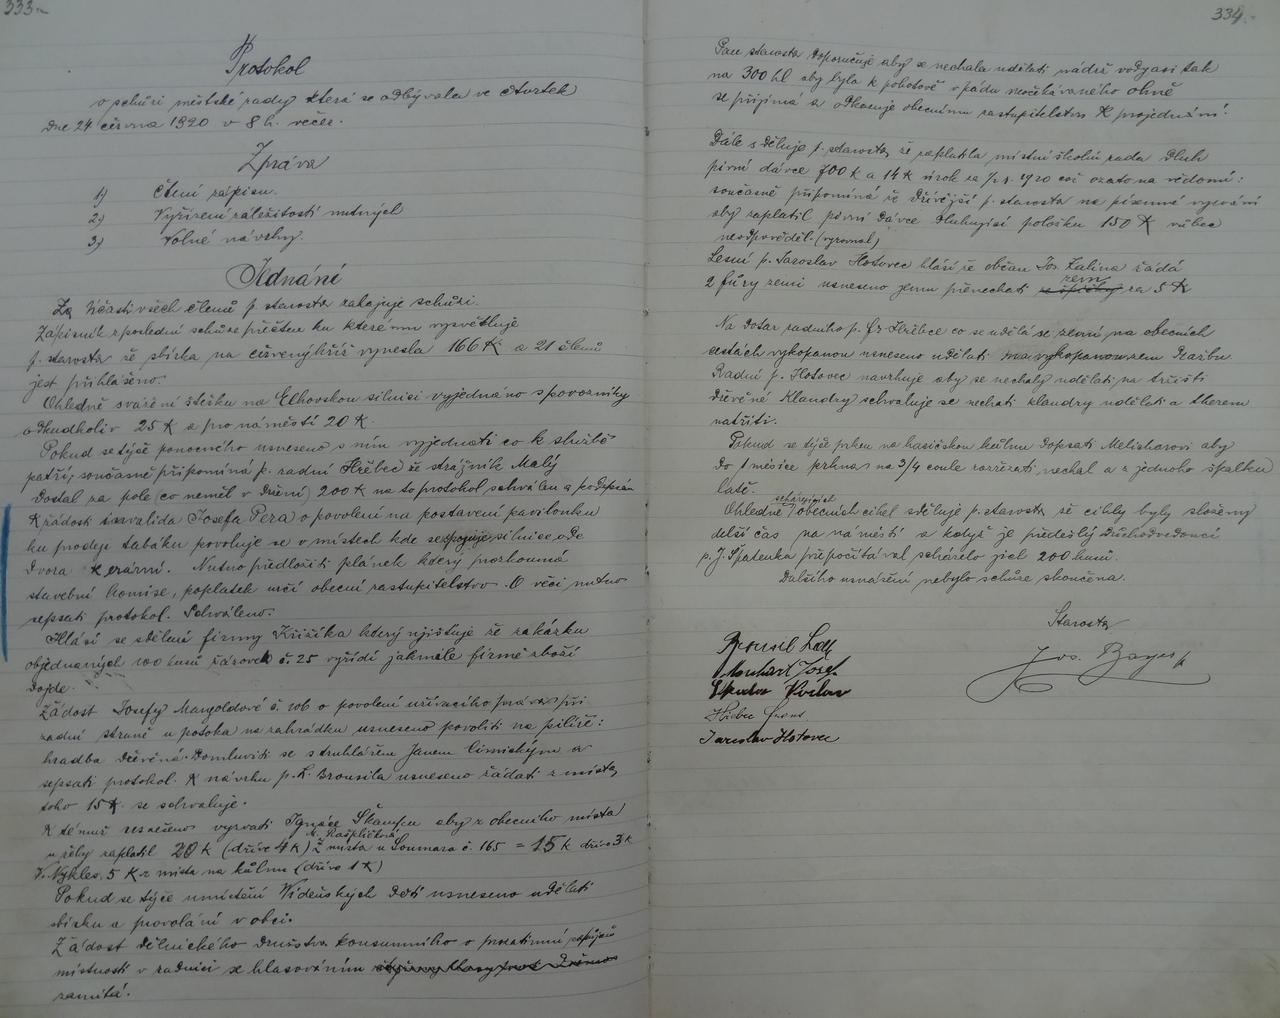 333.-
Protokol
o schůzi městské rady která se odbývala ve čtvrtek
dne 24 června 1920 v 8 h. večer.
Zpráva
1) Čtení zápisu.
2) Vyřízení záležitostí nutných
3) Volné návrhy.
Jednání
Za účasti všech členů p. starosta zahajuje schůzi.
Zápisník z poslední schůze přečten ku kterému vysvětluje
p. starosta že sbírka na červený kříž vynesla 166 K a 21 členů
jest přihlášeno.
Ohledně svážení štěrku na Elhovskou silnici vyjednáno s povozníky
odkudkoliv 25 K a pro náměstí 20 K.
Pokud se týče ponocného usneseno s ním vyjednati co k službě
patří, současně připomíná p. radní Hřebec že strážník Malý
dostal za pole (co neměl v držení) 200 K na to protokol schválen a podepsán
K žádosti invalida Josefa Pera o povolení na postavení pavilonku
ku prodeji tabáku povoluje se v místech kde se spojuje silnice ode
Dvora k erární. Nutno předložiti plánek který prozkoumá
stavební komise, poplatek určí obecní zastupitelstvo. O věci nutno
sepsati protokol. Schváleno.
Hlásí se sdělení firmy Křižíka který ujišťuje že zakázku
objednaných 100 kusů žárovek č. 25 vyřídí jakmile firmě zboží
dojde.
Žádost Josefy Mangoldové č. 106 o povolení užívacího práva při
zadní straně u potoka na zahrádku usneseno povoliti na pilíře:
hradba dřevěná. Domluviti se s truhlářem Janem Cimickým a
sepsati protokol. K návrhu p. L. Brousila usneseno žádati z místa
toho 15 K. se schvaluje.
K témuž usneseno vyzvati Ignáce Škampu aby z obecního místa
M. Rašpličková
u cihly zaplatil 20 K (dříve 4 K) Z místa u Soumara č. 165 = 15 K dříve 3 K
V. Nykles 5 K z místa na kůlnu (dříve 1 K)
Pokud se týče umístění Vídeňských dětí usneseno udělati
sbírku a provolání v obci.
Žádost dělnického družstva konsumního o prozatimní zapůjčení
místností v radnici se hlasováním
zamítá.
334.-
Pan starosta doporučuje aby se nechala udělati nádrž vody asi tak
na 300 hl aby byla k pohotově v pádu neočekávaného ohně
se přijímá a odkazuje obecnímu zastupitelstvu k projednání.
Dále sděluje p. starosta, že zaplatila místní školní rada dluh
pivní dávce 700 K a 14 K úrok za 1/2 r. 1920 což vzato na vědomí:
současně připomíná že dřívější p. starosta na písemné vyzvání
aby zaplatil pivní dávce dlužnou položku 150 K vůbec
neodpověděl. (vyrovnal)
Lesní p. Jaroslav Hotovec hlásí že občan Jos. Žalina žádá
zem
2 fůry zemi usneseno jemu přenechati za 5 K
Na dotaz radního p. Fr. Hřebce co se udělá se zemí na obecních
cestách vykopanou usneseno udělati na vykopanou zem dražbu
Radní p. Hotovec navrhuje aby se nechaly udělati na tržišti
dřevěné klandry schvaluje se nechati klandry udělati a therem
natříti.
Pokud se týče prken na hasičskou kůlnu dopsati Melicharovi aby
do 1 měsíce prkna na 3/4 coule rozřezati nechal a z jednoho špalku
latě.
scházejících
Ohledně obecních cihel sděluje p. starosta že cihly byly složeny
delší čas na náměstí a když je předešlý důchodvedoucí
p. J. Špalenka přepočítával scházelo jich 200 kusů.
Dalšího usnášení nebylo schůze skončena.
Starosta
Brousil Lad.
Jos. Bayer
Monhart Josef
Hřebec Frant
Jaroslav Hotovec